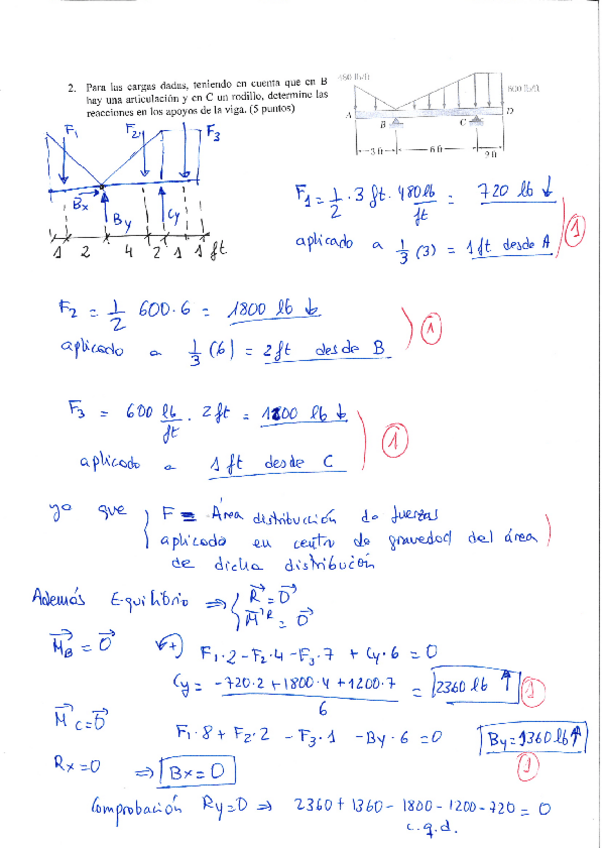 2. Para las cargas dadas, teniendo en cuenta que en B
hay una articulación y en C un rodillo, determine las
reacciones en los apoyos de la viga. (5 puntos)
480 lb/ft
600 lb/ft
A
B
C
D
3 ft
6 ft
2 ft
F1
F2
F3
Bx
By
Cy
1 2 4 2 1 1 ft.
F1 = 1/2 · 3 ft · 480 lb/ft = 720 lb ↓
aplicado a 1/3 (3) = 1 ft desde A
1
F2 = 1/2 600·6 = 1800 lb ↓
aplicado a 1/3 (6) = 2 ft desde B
1
F3 = 600 lb/ft · 2 ft = 1200 lb ↓
aplicado a 1 ft desde C
1
ya que { F = Área distribución de fuerzas
aplicado en centro de gravedad del área
de dicha distribución
Además Equilibrio ⇒ { R = 0
M^R = 0
M_B = 0 +) F1·2 - F2·4 - F3·7 + Cy·6 = 0
Cy = (-720·2 + 1800·4 + 1200·7)/6 = 2360 lb ↑
1
M_C = 0
F1·8 + F2·2 - F3·1 - By·6 = 0 By = 1360 lb ↑
1
Rx = 0 ⇒ Bx = 0
Comprobación Ry = 0 ⇒ 2360 + 1360 - 1800 - 1200 - 720 = 0
c.q.d.